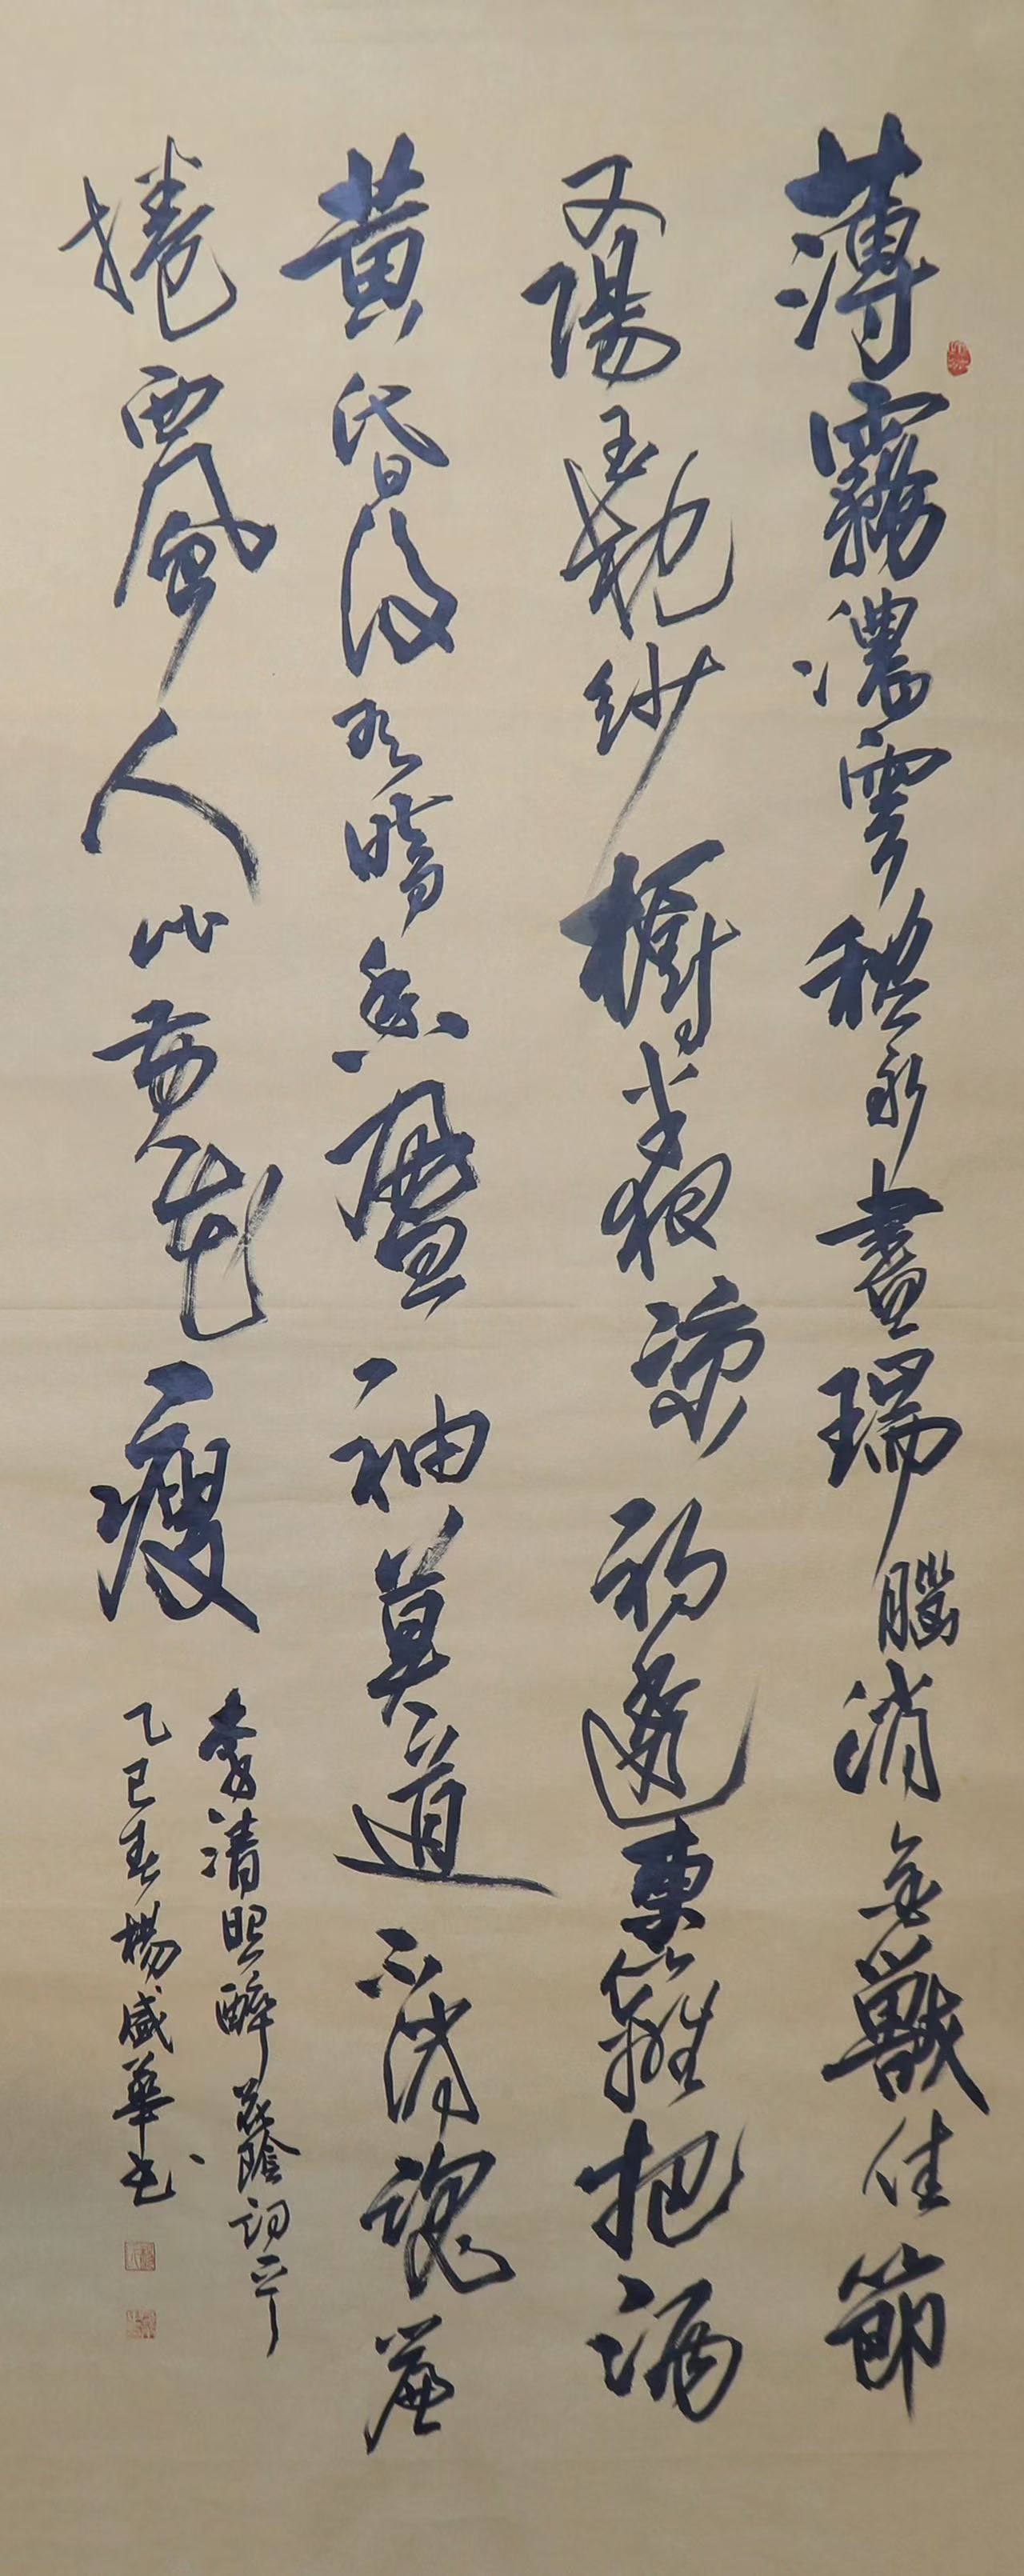 薄霧濃雲愁永晝瑞腦消金獸佳節
又陽玉枕紗櫥半夜涼初透東籬把酒
黃昏後有暗香盈袖莫道不消魂簾
捲西風人比黃花瘦
李清照醉花蔭詞
乙巳春楊盛華书